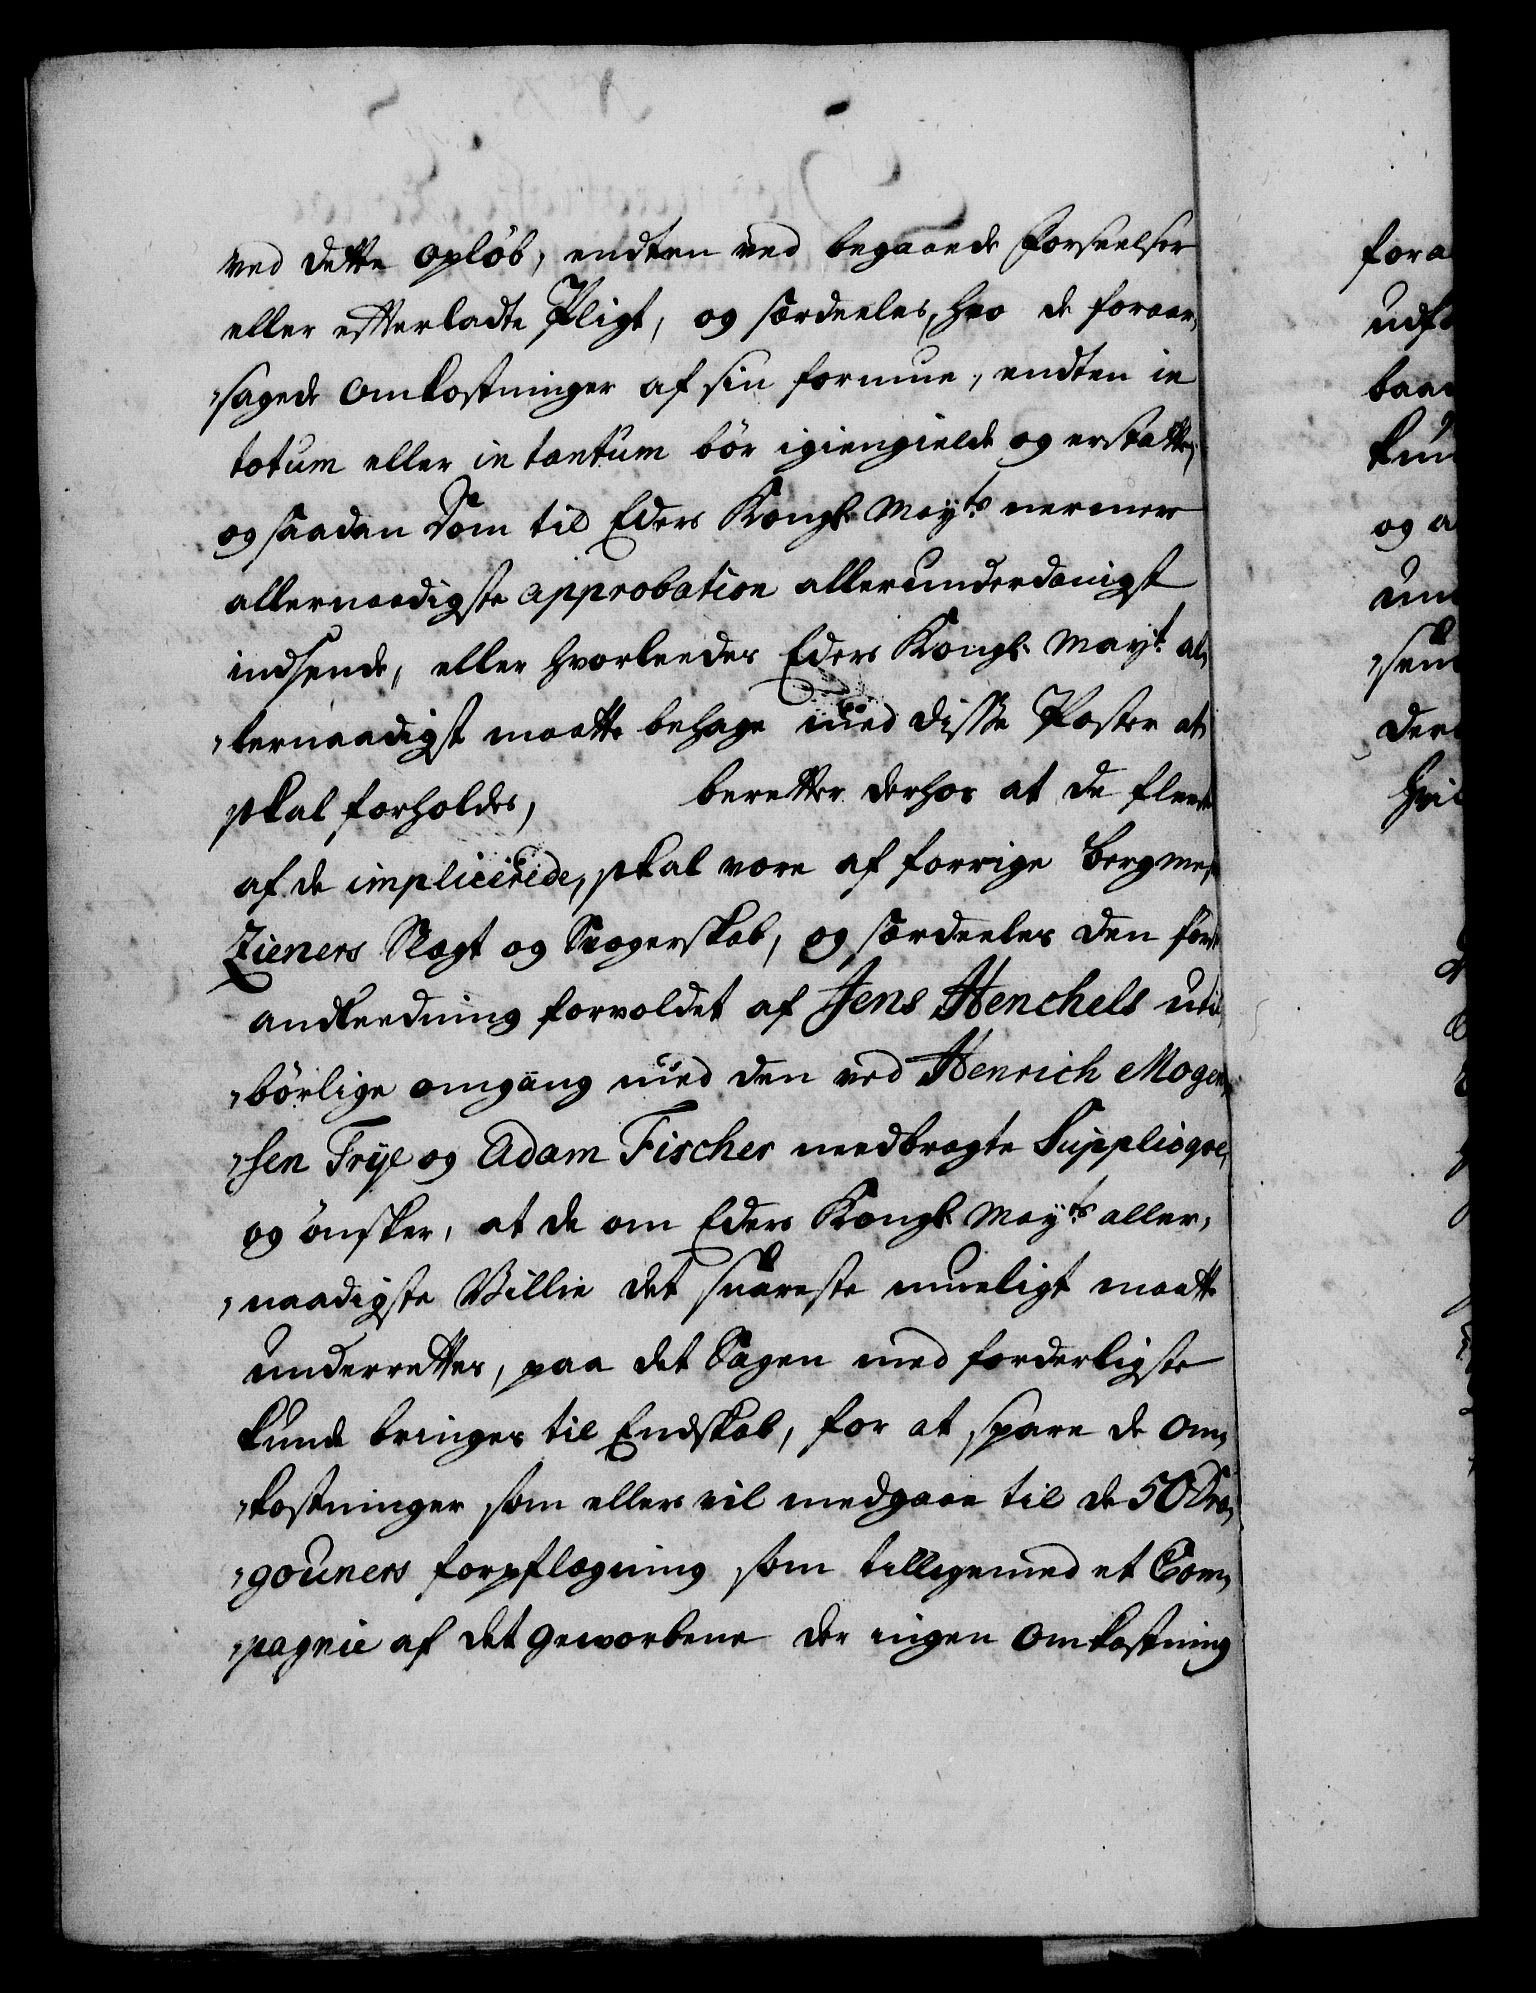 ved dette opløb, endten ved begaaede forseelser
eller efterladte Pligt, og særdeeles, hvo de foraar,
,sagede omkostninger af sin formue, endten in
totum eller in tantum bør igiengielde og erstatte,
og saadan Dom til Eders Kongl. Mayts nermere
allernaadigste approbation allerunderdanigst
indsende, eller hvorleedes Eders Kongl. Mayt. al,
,lernaadigst maatte behage med disse Poster at
skal forholdes, beretter derhos at de fleeste
af de implicerede, skal være af forrige Bergmest
Zieners Slægt og Svogerskab, og særdeeles den første
andleedning forvoldet af Jens Henchels util,
,børlige omgang med den ved Henrich Mogen,
,sen Trye og Adam Fischer needbragte Supplicqve,
og ønsker, at de om Eders Kongl. Mayts aller,
,naadigste Villie det snareste mueligt maatte
underrettes, paa det Sagen med forderligste
kunde bringes til Endskab, for at spare de om,
,kostninger som ellers vil medgaae til de 50 Dra,
,gouners forpflegning som tilligemed et Com,
,pagnie af det geworbene der ingen omkostning
fora
udf
baa
kun
og a
un
,sen
der
hvi